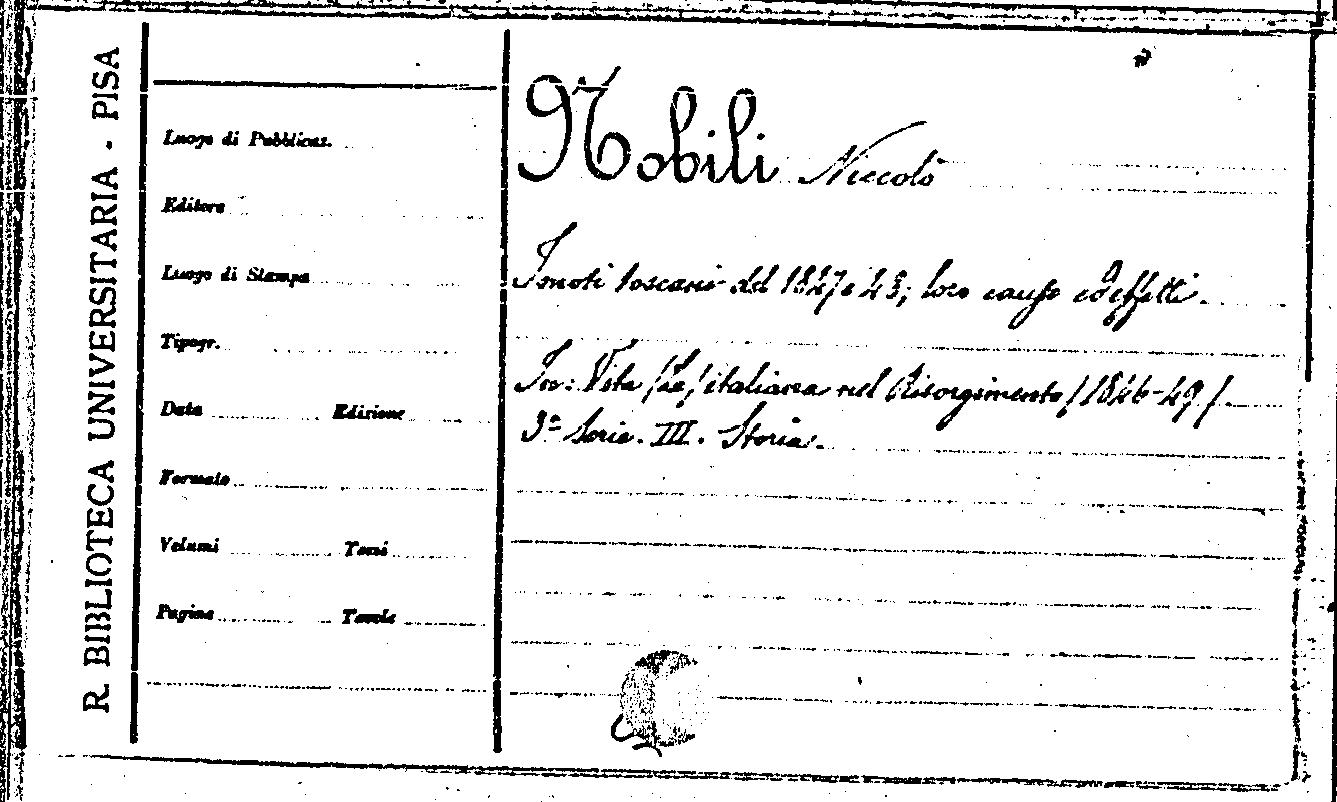 R. BIBLIOTECA UNIVERSITARIA - PISA
Luogo di Pubblicaz.
Editore
Luogo di Stampa
Tipogr.
Data Edizione
Formato
Volumi Tomi
Pagine Tavole
Nobili Niccolò
I moti toscani del 1847 e 48; loro cause ed effetti.
In: Vita /La/ italiana nel Risorgimento /1846-49/.
3ª Serie. III. Storia.